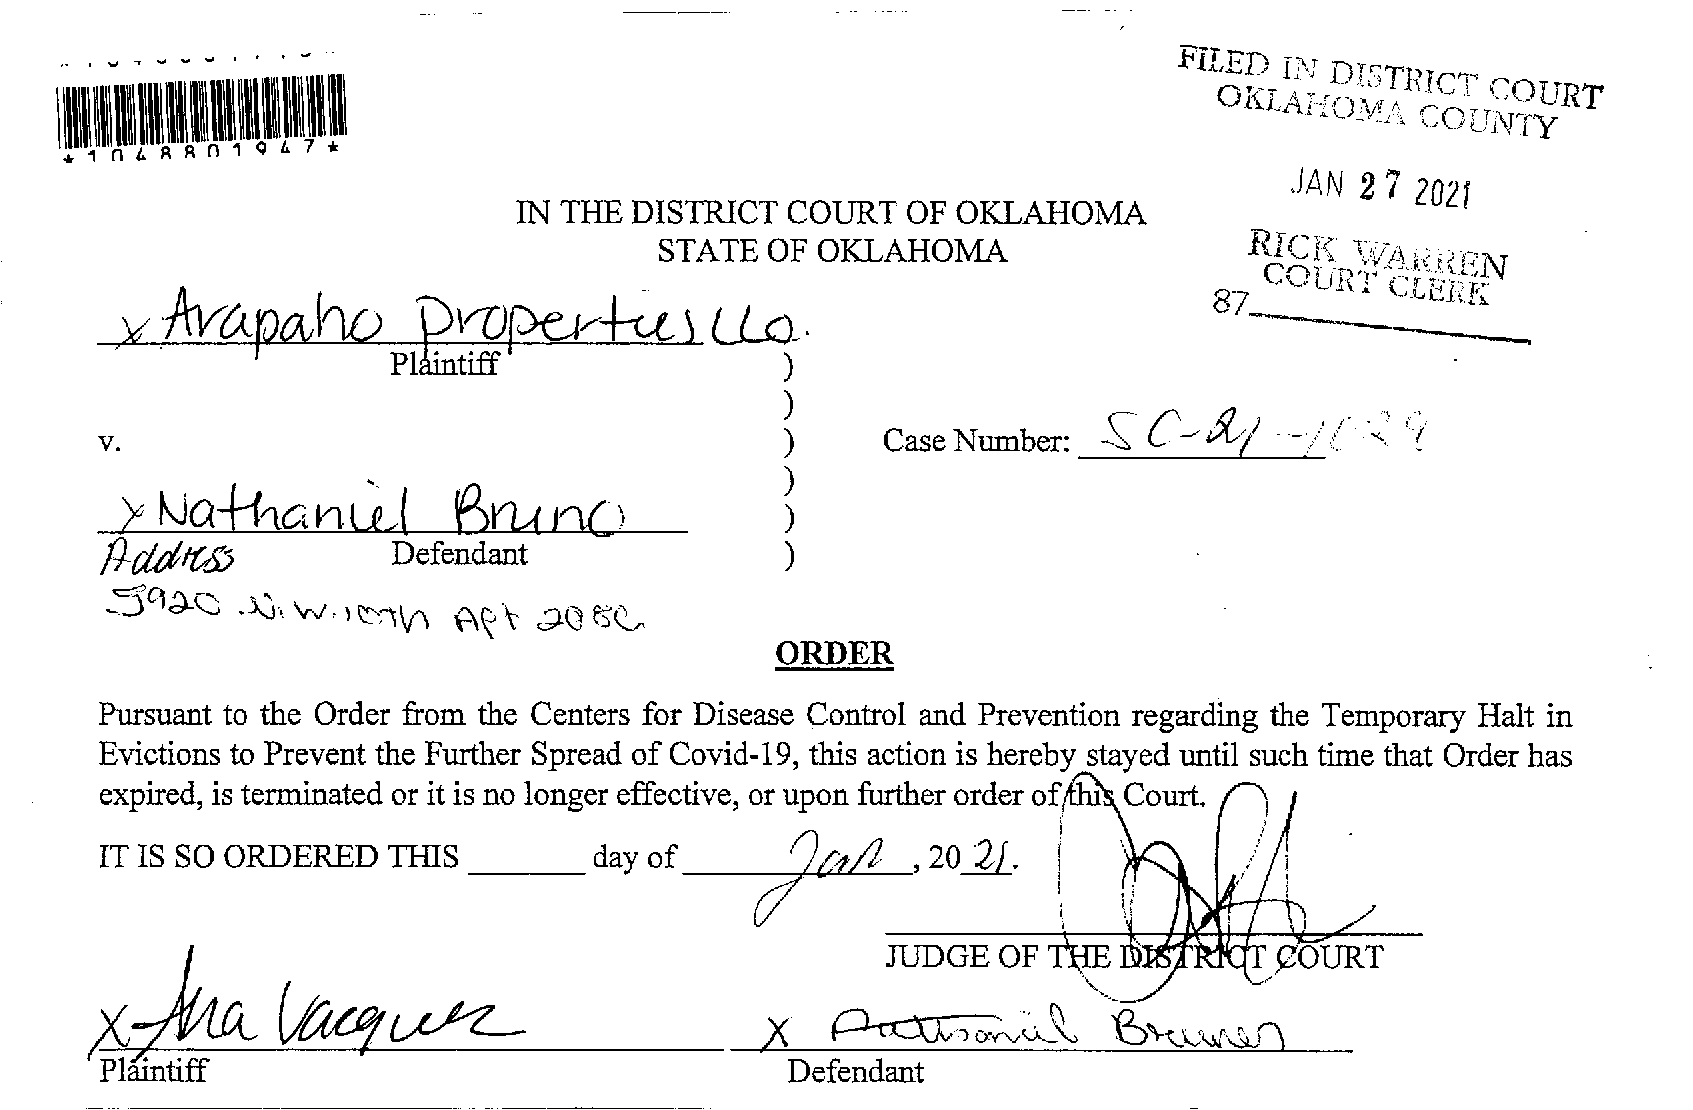 *1048801947*
FILED IN DISTRICT COURT
OKLAHOMA COUNTY
JAN 27 2021
RICK WARREN
COURT CLERK
87
IN THE DISTRICT COURT OF OKLAHOMA
STATE OF OKLAHOMA
x Arapaho Properties LLC.
Plaintiff )
)
v. ) Case Number: SC-21-1029
)
x Nathaniel Bruno )
Address Defendant )
5920 N.W. 10th Apt 208C
ORDER
Pursuant to the Order from the Centers for Disease Control and Prevention regarding the Temporary Halt in
Evictions to Prevent the Further Spread of Covid-19, this action is hereby stayed until such time that Order has
expired, is terminated or it is no longer effective, or upon further order of this Court.
IT IS SO ORDERED THIS ______ day of Jan, 2021.
JUDGE OF THE DISTRICT COURT
x Ana Vacquez x Bruno
Plaintiff Defendant